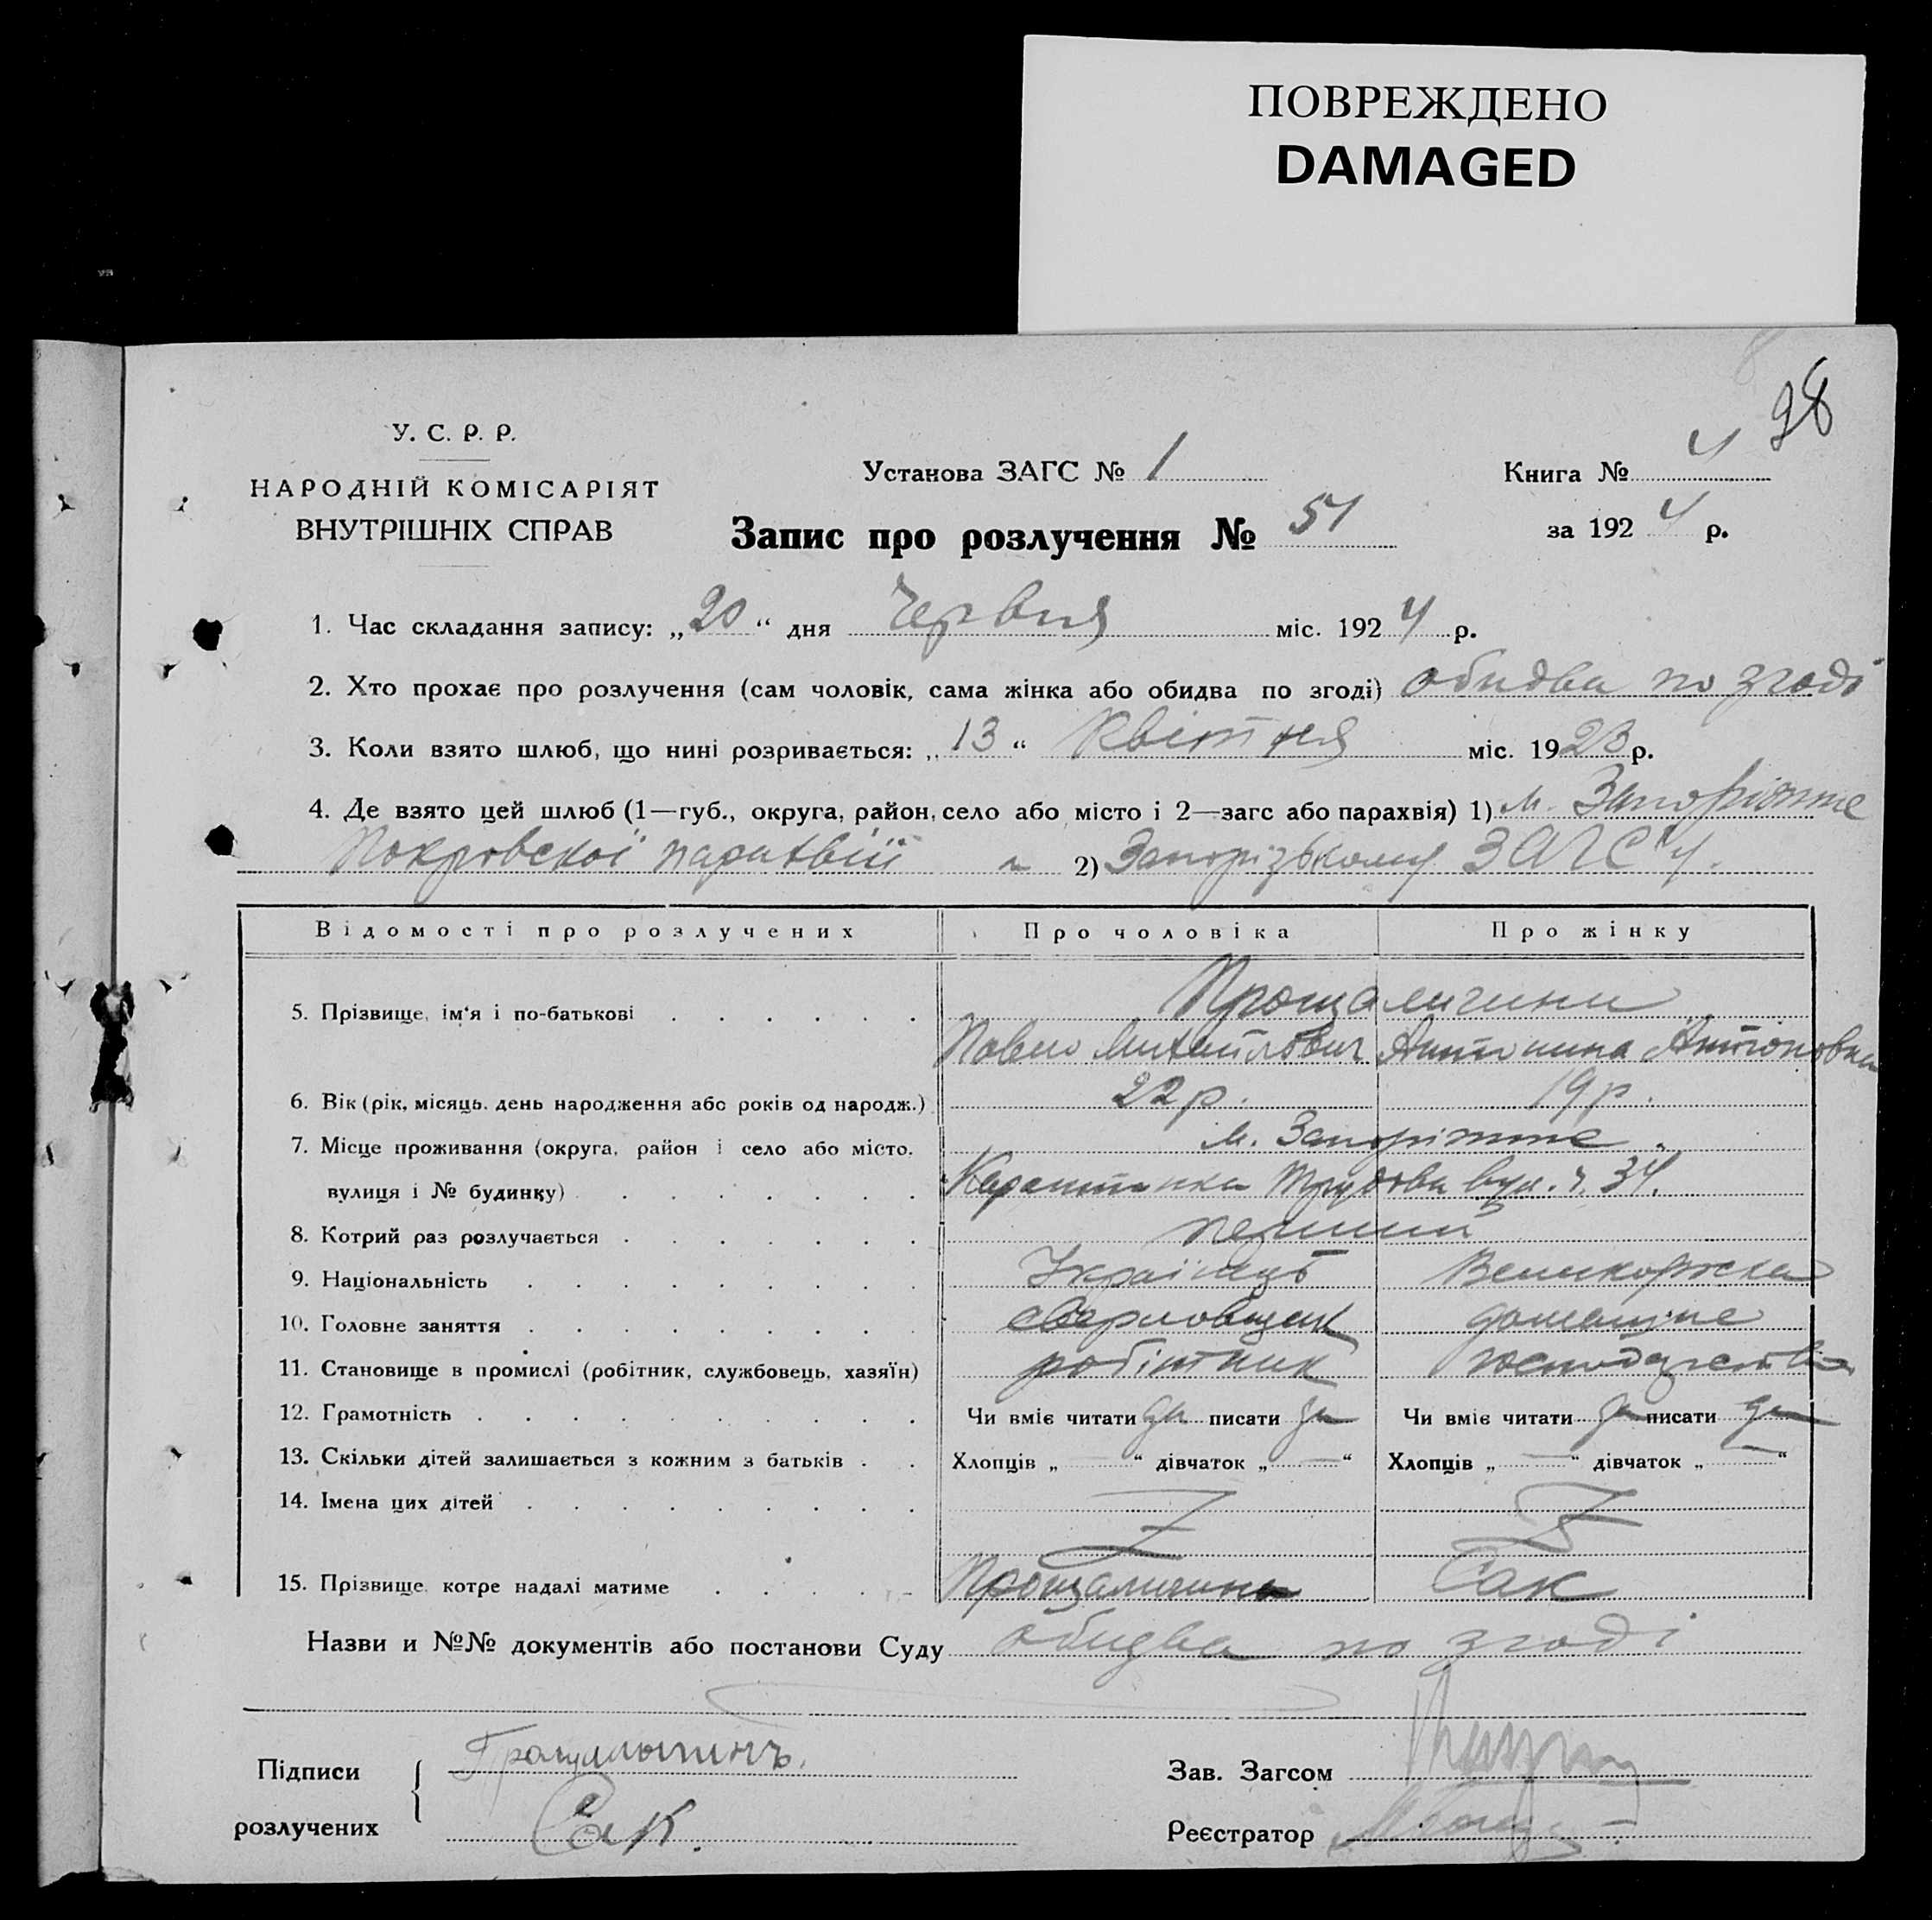 ПОВРЕЖДЕНО
DAMAGED
98
У. С. Р. Р.
НАРОДНІЙ КОМІСАРІЯТ
ВНУТРІШНІХ СПРАВ
Установа ЗАГС № 1
Книга № 4
Запис про розлучення № 51
за 1924 р.
1. Час складання запису: „20“ дня Червня міс. 1924 р.
2. Хто прохає про розлучення (сам чоловік, сама жінка або обидва по згоді) обидва по згоді
3. Коли взято шлюб, що нині розривається: „13“ Квітня міс. 1923 р.
4. Де взято цей шлюб (1—губ., округа, район, село або місто і 2—загс або парахвія) 1) м. Запоріжже
Покровскої парахвії 2) Запорізькому ЗАГС'у.
Відомості про розлучених Про чоловіка Про жінку
5. Прізвище, ім'я і по-батькові
Павло Михайлович Антонина Антоновна
6. Вік (рік, місяць, день народження або років од народж.) 22 р. 19 р.
7. Місце проживання (округа, район і село або місто, м. Запоріжже
вулиця і № будинку) Карантинка Трудова вул. ч. 34.
8. Котрий раз розлучається перший
9. Національність Українець Великоруска
10. Головне заняття сверловщик домашне
11. Становище в промислі (робітник, службовець, хазяїн) робітник господарство
12. Грамотність Чи вміє читати да писати да Чи вміє читати да писати да
13. Скільки дітей залишається з кожним з батьків Хлопців „—“ дівчаток „—“ Хлопців „—“ дівчаток „—“
14. Імена цих дітей
15. Прізвище, котре надалі матиме Сак
Назви и №№ документів або постанови Суду обидва по згоді
Підписи
розлучених
Сак.
Зав. Загсом
Реєстратор